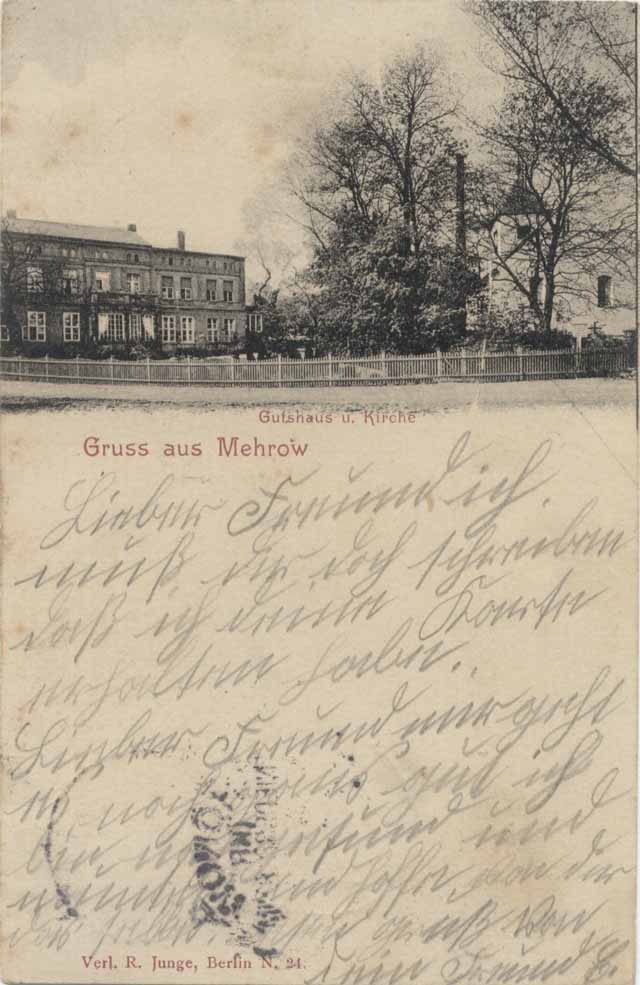 Gutshaus u. Kirche
Gruss aus Mehrow
Lieber Freund ich
muß dir doch schreiben
daß ich deine Karte
erhalten habe.
Lieber Freund mir geht
es noch ganz gut ich
bin noch gesund und
munter und hoffe von dir
das selbe. gruß von
dein Freund
Verl. R. Junge, Berlin N. 24.